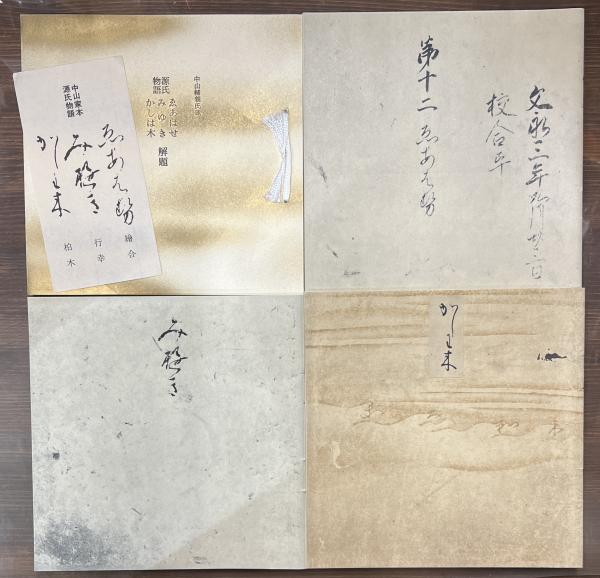 中山輔親氏蔵
源氏物語
ゑあはせ
みゆき
かしは木
解題
中山家本
源氏物語
ゑあはせ
み遊き
かしは木
繪合
行幸
柏木
文永三年
校合畢
第十二 ゑあはせ
み遊き
かしは木